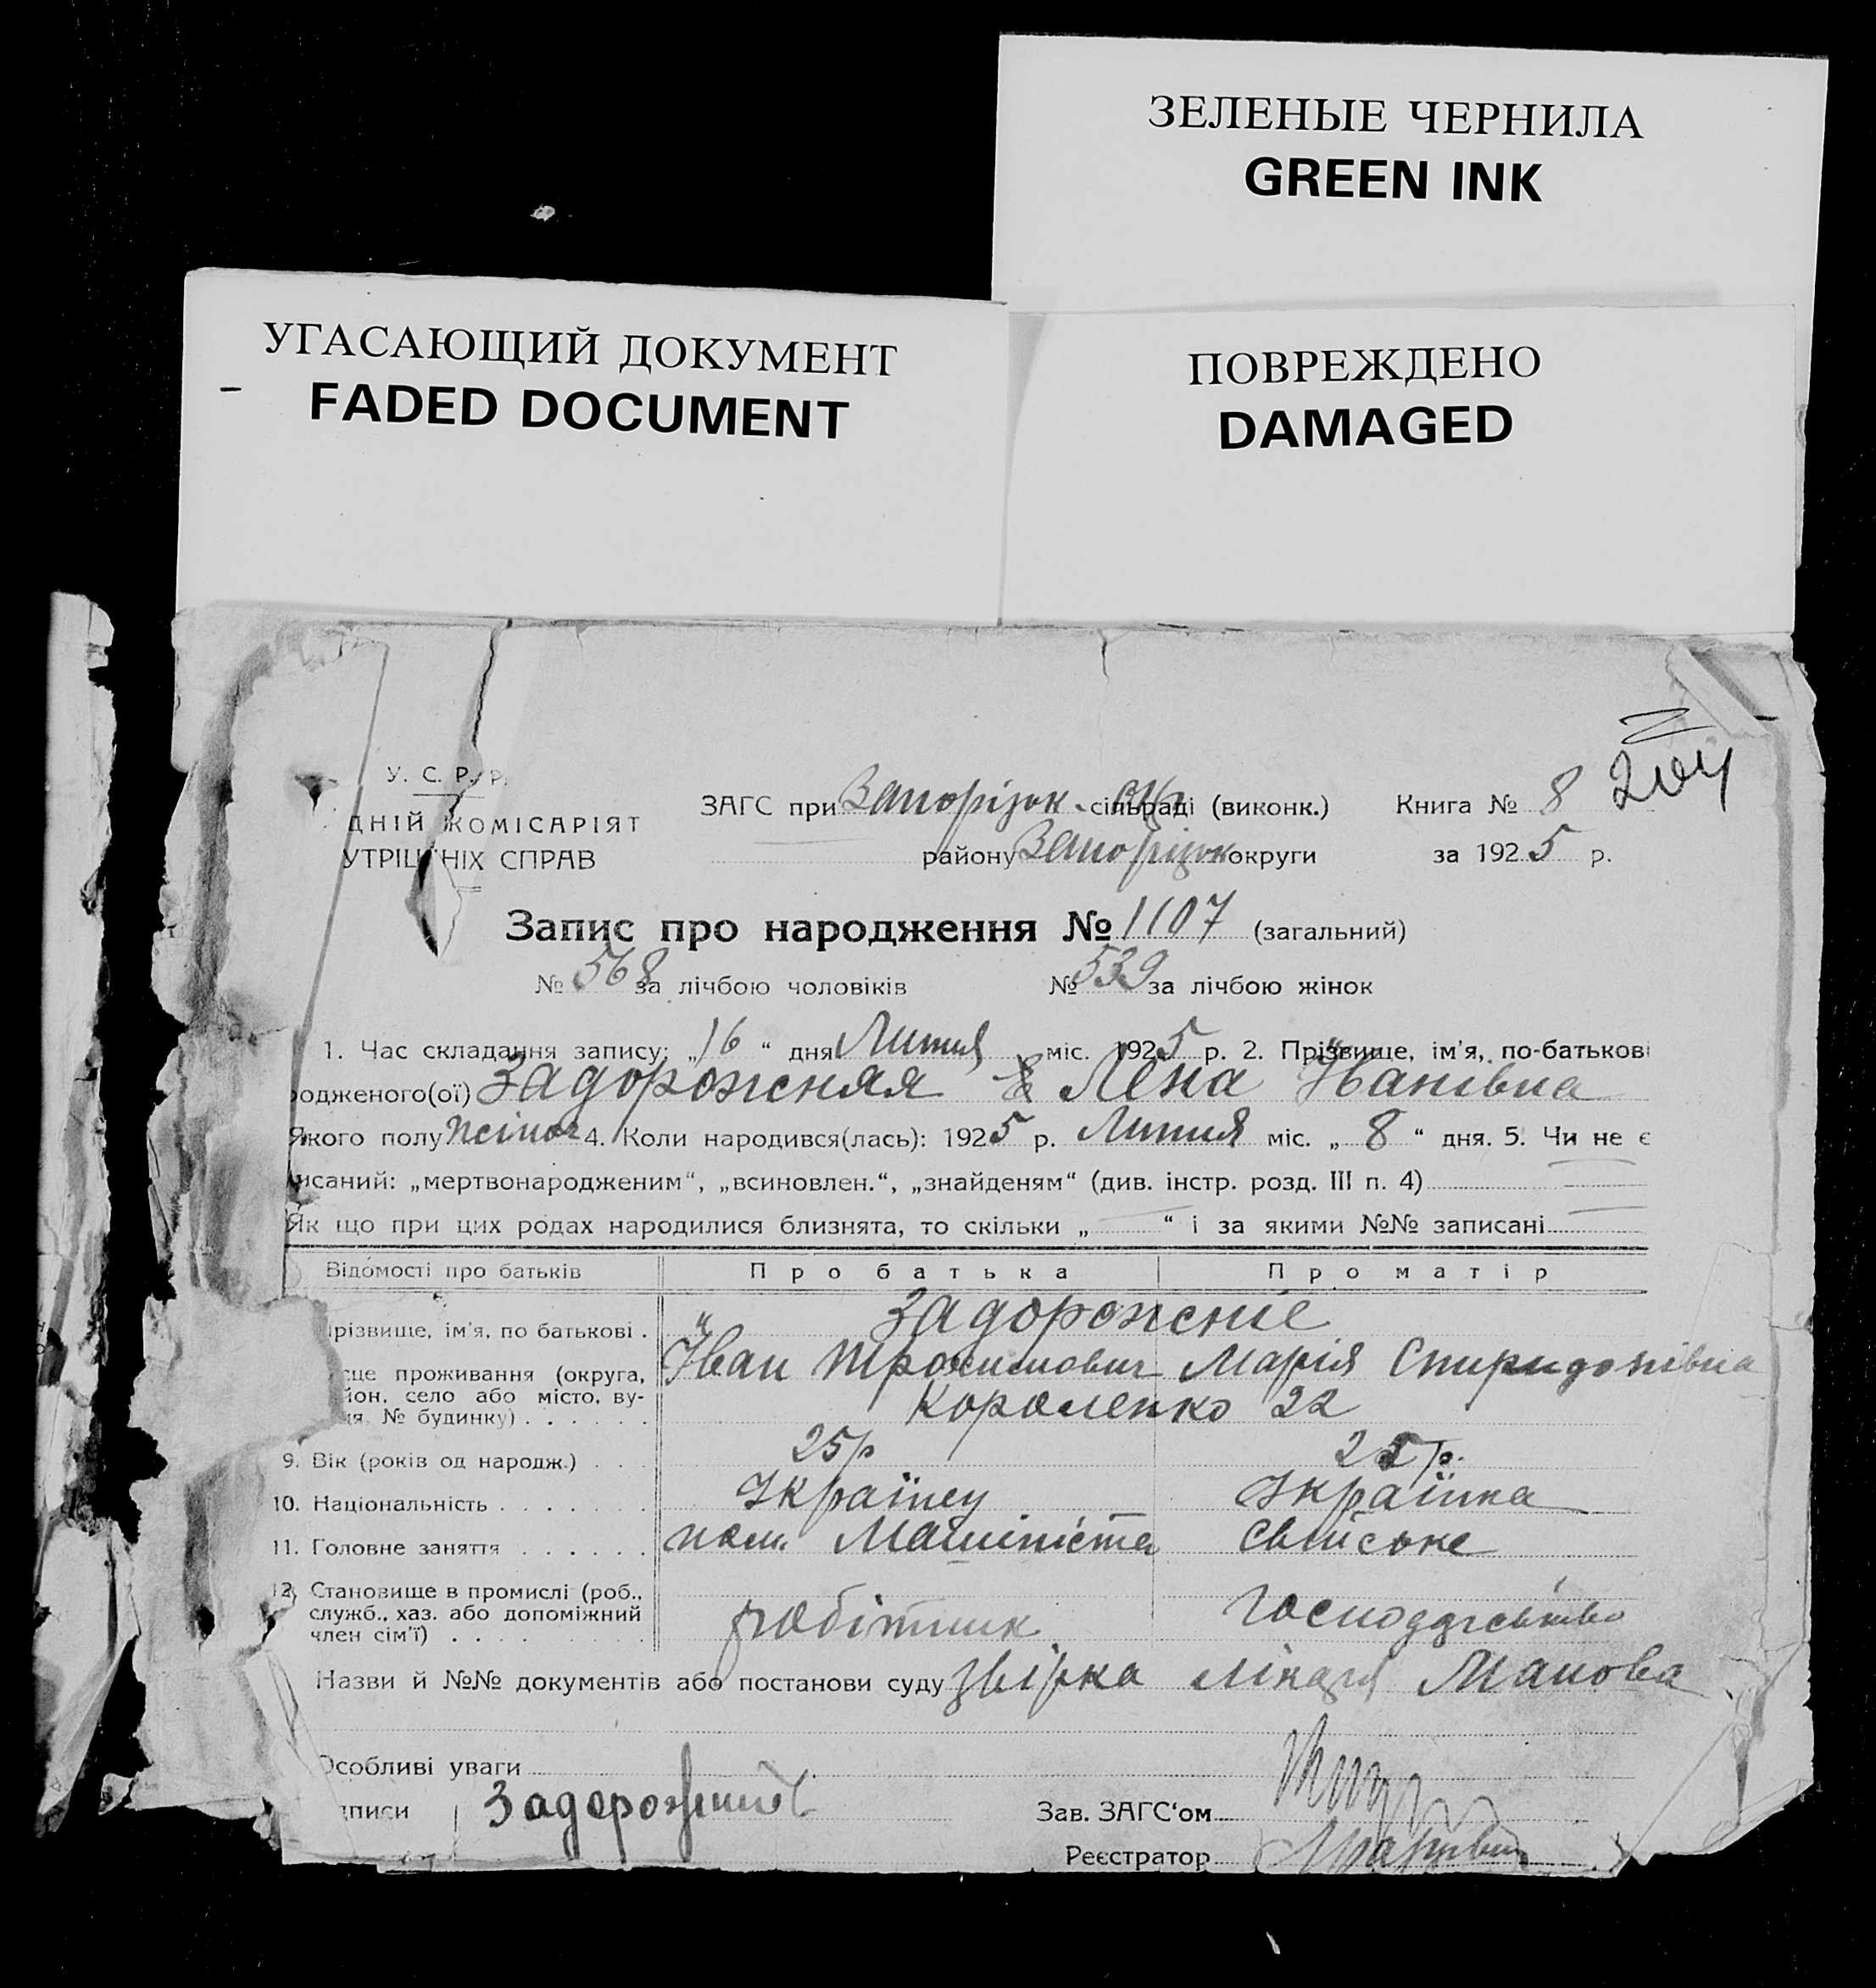 ЗЕЛЕНЫЕ ЧЕРНИЛА
GREEN INK
УГАСАЮЩИЙ ДОКУМЕНТ
FADED DOCUMENT
ПОВРЕЖДЕНО
DAMAGED
У. С. Р. Р.
ДНІЙ КОМІСАРІЯТ
УТРІШНІХ СПРАВ
ЗАГС при Запоріжок. сільраді (виконк.) Книга № 8
району Запоріжок округи за 1925 р.
Запис про народження № 1107 (загальний)
№ 568 за лічбою чоловіків № 539 за лічбою жінок
1. Час складання запису: „16“ дня Липня міс. 1925 р. 2. Прізвище, ім'я, по-батькові
родженого(ої) Задорожняя Лена Іванівна
Якого полу жіноч 4. Коли народився(лась): 1925 р. Липня міс. „8“ дня. 5. Чи не є
писаний: „мертвонародженим“, „всиновлен.“, „знайденям“ (див. інстр. розд. III п. 4)
Як що при цих родах народилися близнята, то скільки „ “ і за якими №№ записані
Відомості про батьків Про батька Про матір
прізвище, ім'я, по батькові . Задорожніе
Іван Трохимович Марія Спиридонівна
сце проживання (округа,
йон, село або місто, ву-
ця, № будинку) . . . . . . Короленко 22
9. Вік (років од народж.) . . . 25р р.
10. Національність . . . . . . . Українец Українка
11. Головне заняття . . . . . . пом. Машиніста свійське
12. Становище в промислі (роб.,
служб., хаз. або допоміжний
член сім'ї) . . . . робітник господарство
Назви й №№ документів або постанови суду лікаря
Особливі уваги
дписи Задорожній
Зав. ЗАГС‘ом
Реєстратор